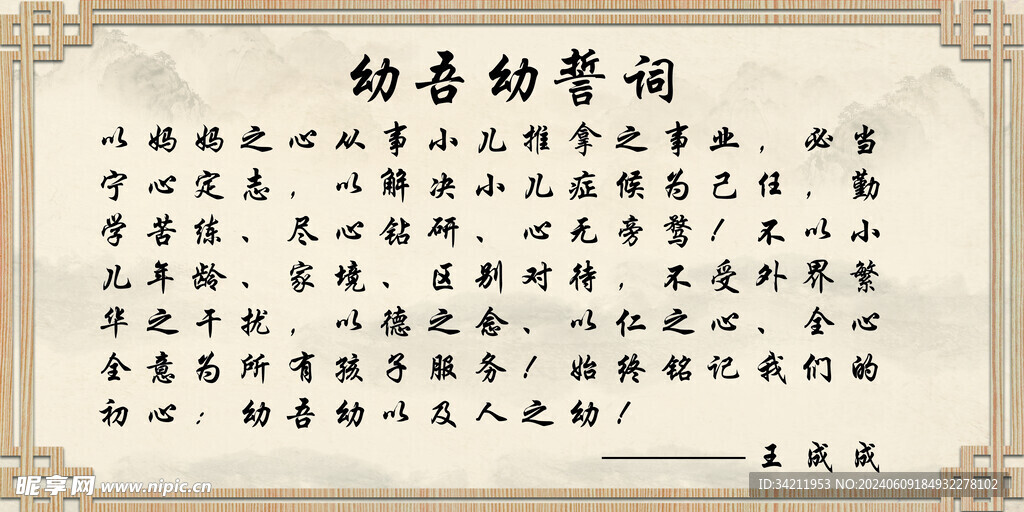 幼吾幼誓词
以妈妈之心从事小儿推拿之事业，必当
宁心定志，以解决小儿症候为己任，勤
学苦练、尽心钻研、心无旁骛！不以小
儿年龄、家境、区别对待，不受外界繁
华之干扰，以德之念、以仁之心、全心
全意为所有孩子服务！始终铭记我们的
初心：幼吾幼以及人之幼！
————王成成
昵享网 www.nipic.cn
ID:34211953 NO:20240609184932278102